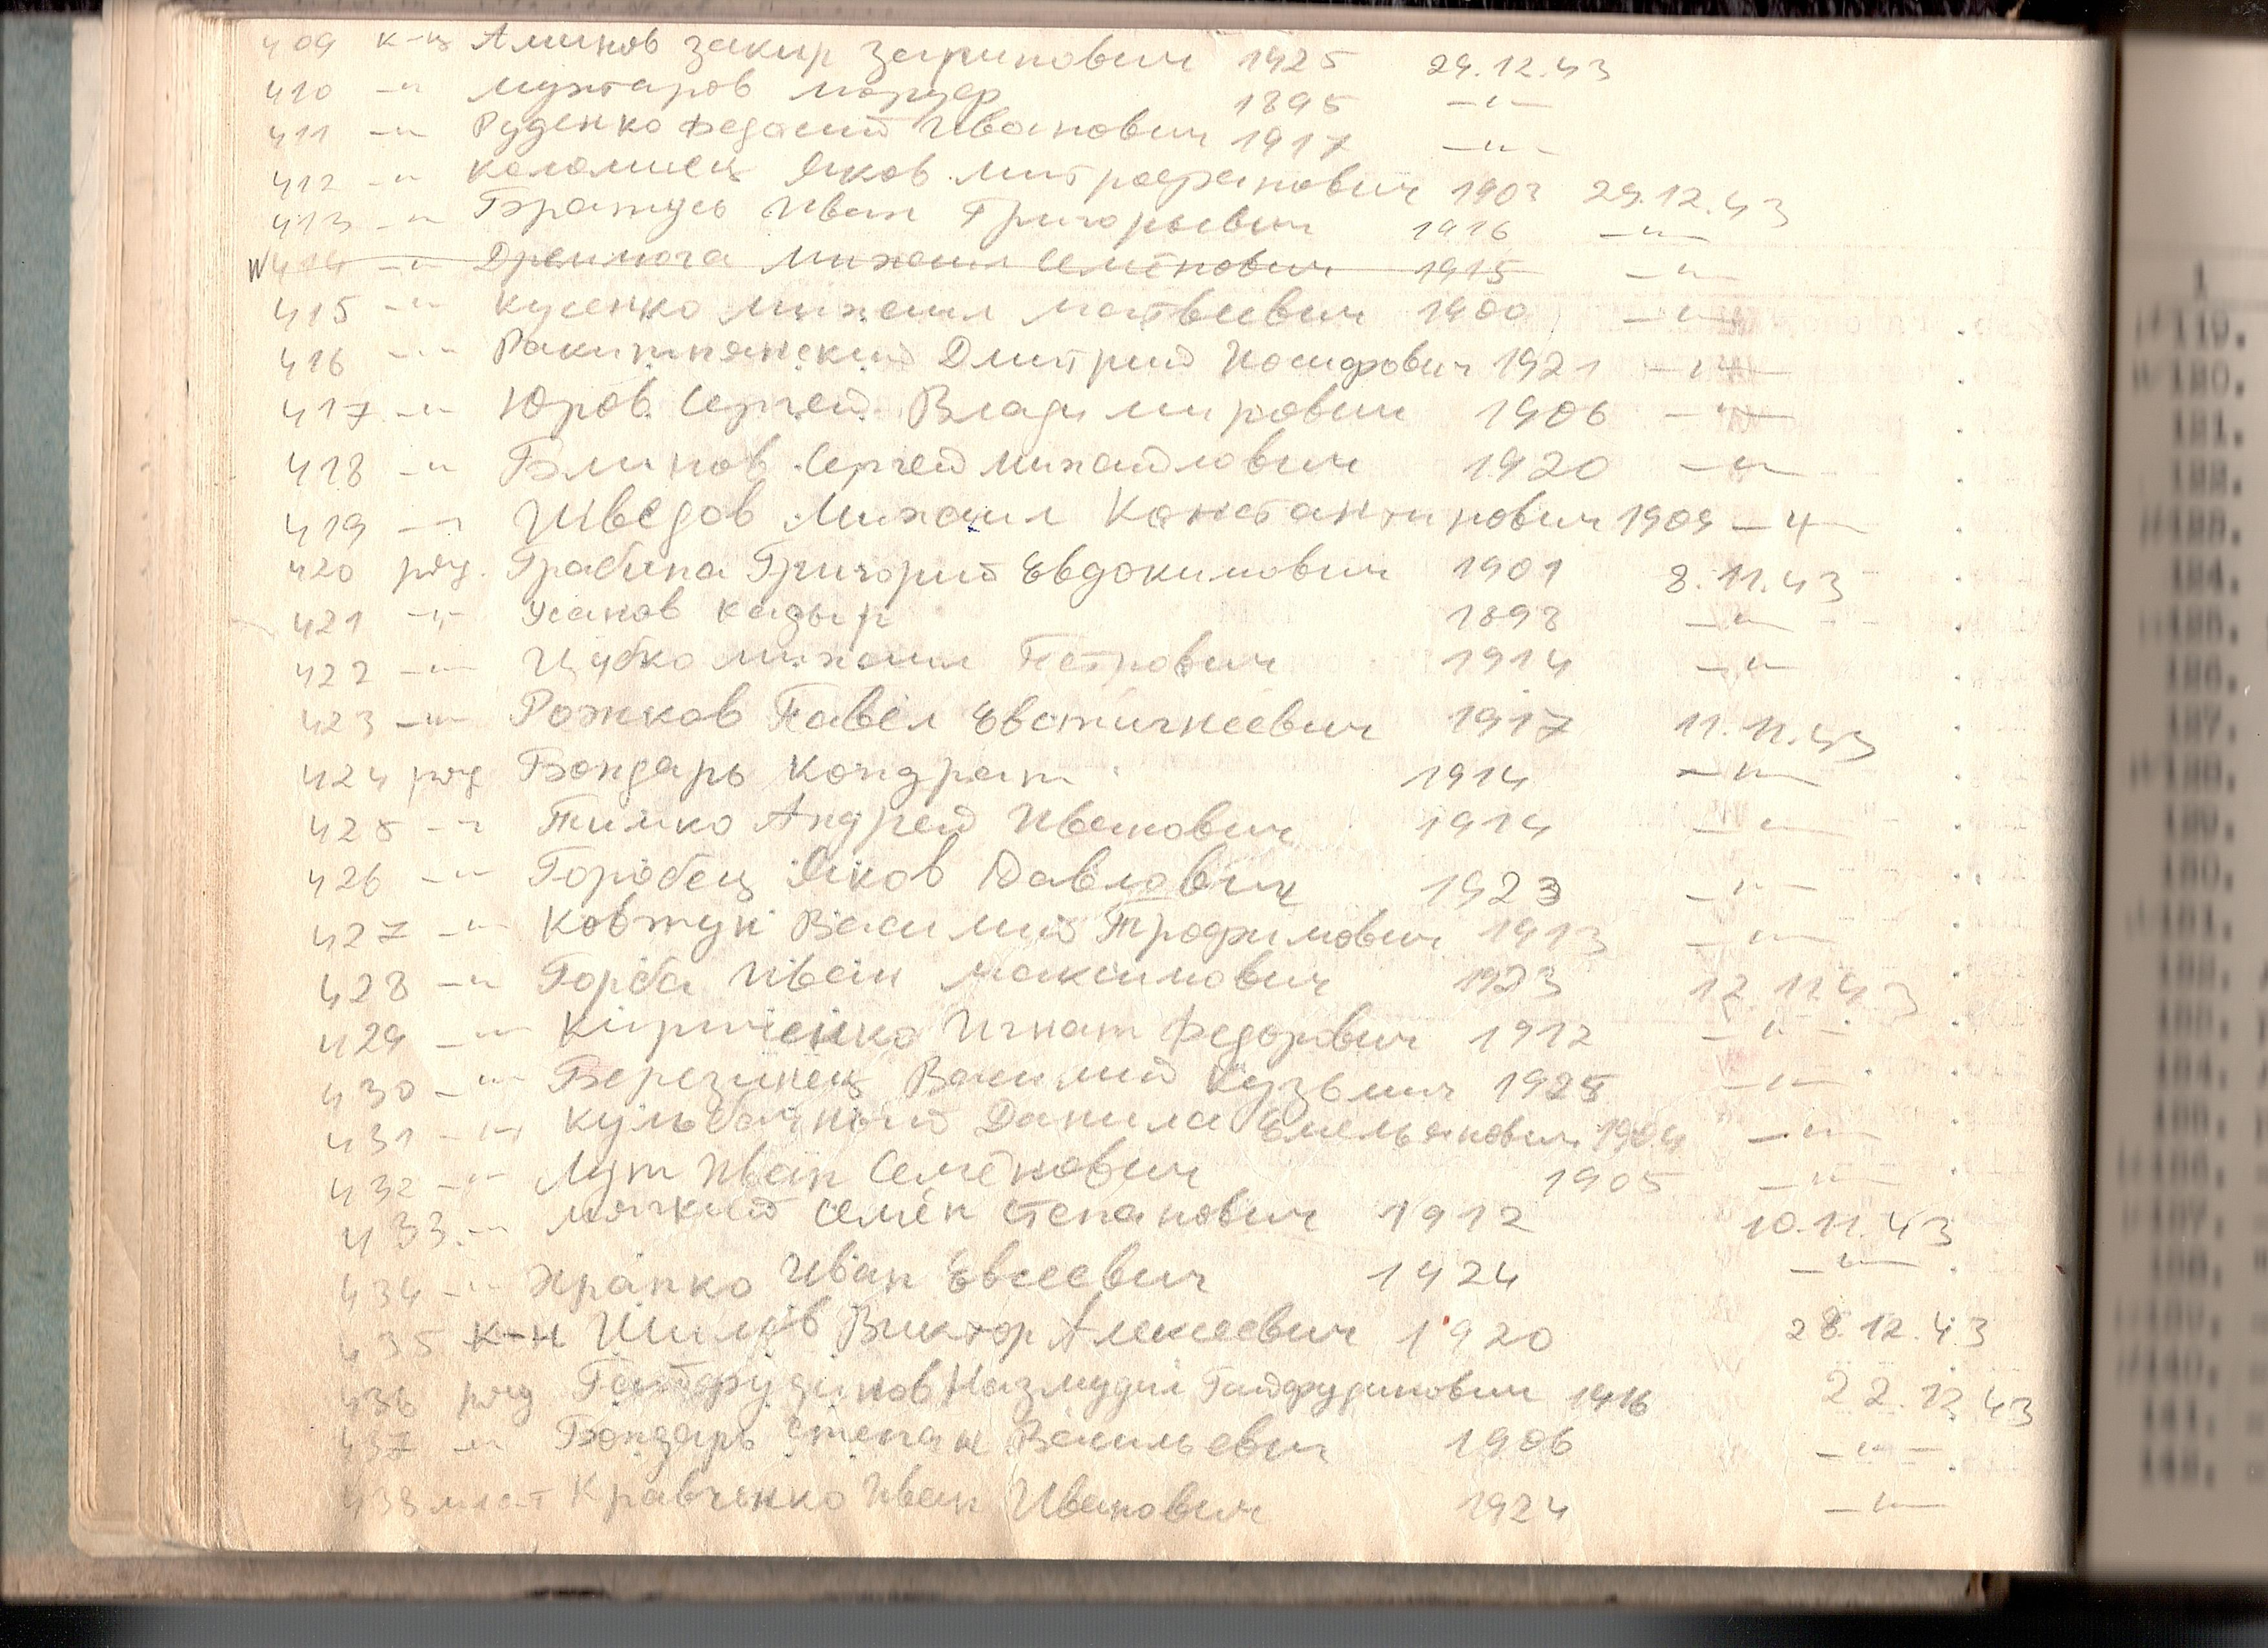 409 к-ц Аминов Закир Зарипович 1925 24.12.43
410 -"- Мухтаров 1895 -"-
411 -"- Руденко Федосий Иванович 1917 -"-
412 -"- Коломиец Яков Митрофанович 1903 24.12.43
413 -"- Бражусь Иван Григорьевич 1916 -"-
414 -"- Дремлюга Михаил Семёнович 1915 -"-
415 -"- Кусенко Михаил Матвеевич 1900 -"-
416 -"- Ракитянский Дмитрий Иосифович 1921 -"-
417 -"- Юров Сергей Владимирович 1906 -"-
418 -"- Блинов Сергей Михайлович 1920 -"-
419 -"- Шведов Михаил Константинович 1909 -"-
420 ряд. Грабина Григорий Евдокимович 1901 8.11.43
421 -"- Усанов Кадыр 1898 -"-
422 -"- Цубко Михаил Петрович 1914 -"-
423 -"- Рожков Павел Евстигнеевич 1917 11.11.43
424 ряд Бондарь Кондрат 1914 -"-
425 -"- Тимко Андрей Иванович 1914 -"-
426 -"- Горобец Яков Павлович 1923 -"-
427 -"- Ковтун Василий Трофимович 1913 -"-
428 -"- Горба Иван Максимович 1923 12.11.43
429 -"- Кириченко Игнат Федорович 1912 -"-
430 -"- Березинец Василий Кузьмич 1925 -"-
431 -"- Кульбачный Данила Емельянович 1904 -"-
432 -"- Лут Иван Семёнович 1905 -"-
433 -"- Мягкий Семён Степанович 1912 10.11.43
434 -"- Храпко Иван Евсеевич 1924 -"-
435 к-н Шилов Виктор Алексеевич 1920 28.12.43
436 ряд Гайфудинов Назмудил Гайфудинович 1916 22.12.43
437 -"- Бондарь Степан Васильевич 1906 -"-
438 мл с-т Кравченко Иван Иванович 1924 -"-
119.
120.
121.
122.
123.
124.
125.
126.
127.
128.
129.
130.
131.